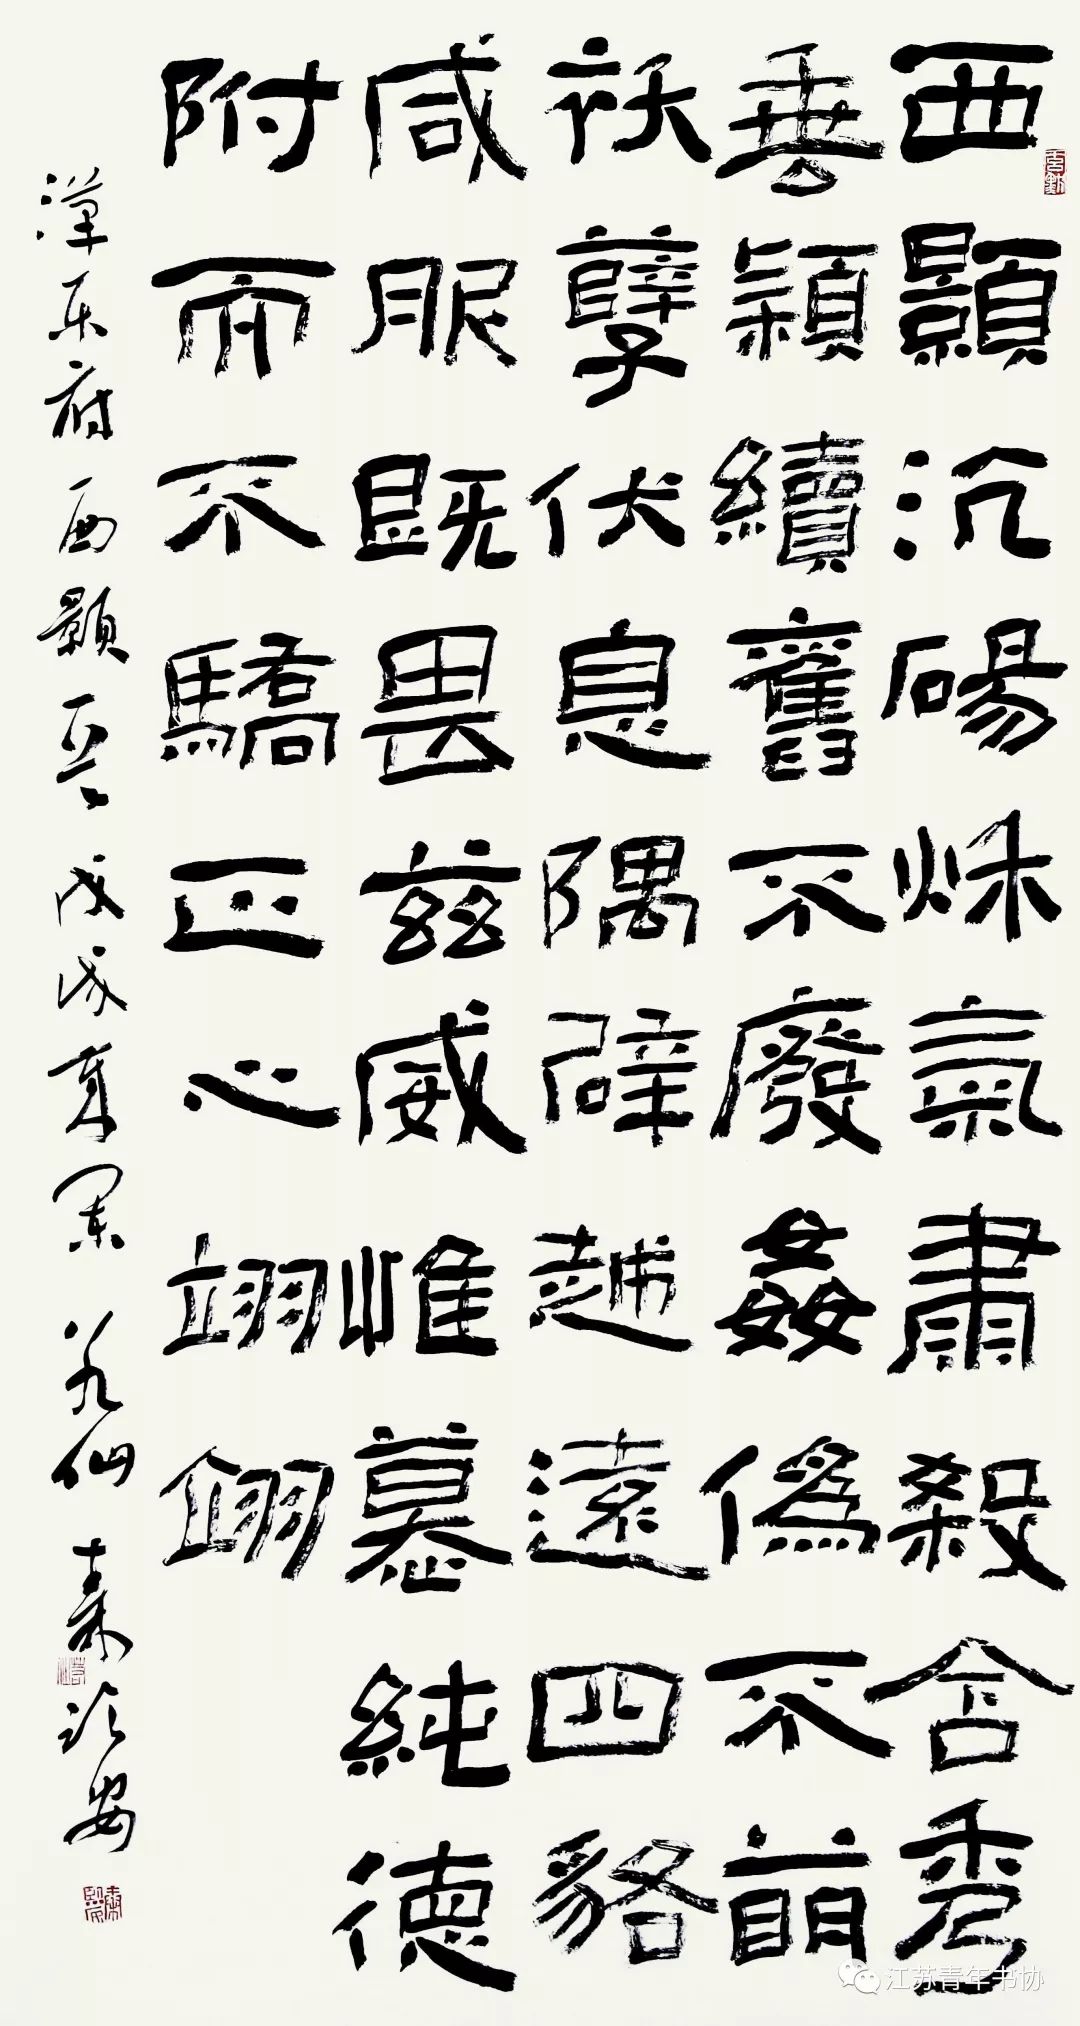 西顥沆碭秌氣肅殺含秀
垂穎續舊不廢姦僞不萌
祅孽伏息隅辟越遠四貉
咸服既畏茲威惟慕純德
附而不驕正心翊翊
漢樂府西顥 戊戌夏
江苏青年书协